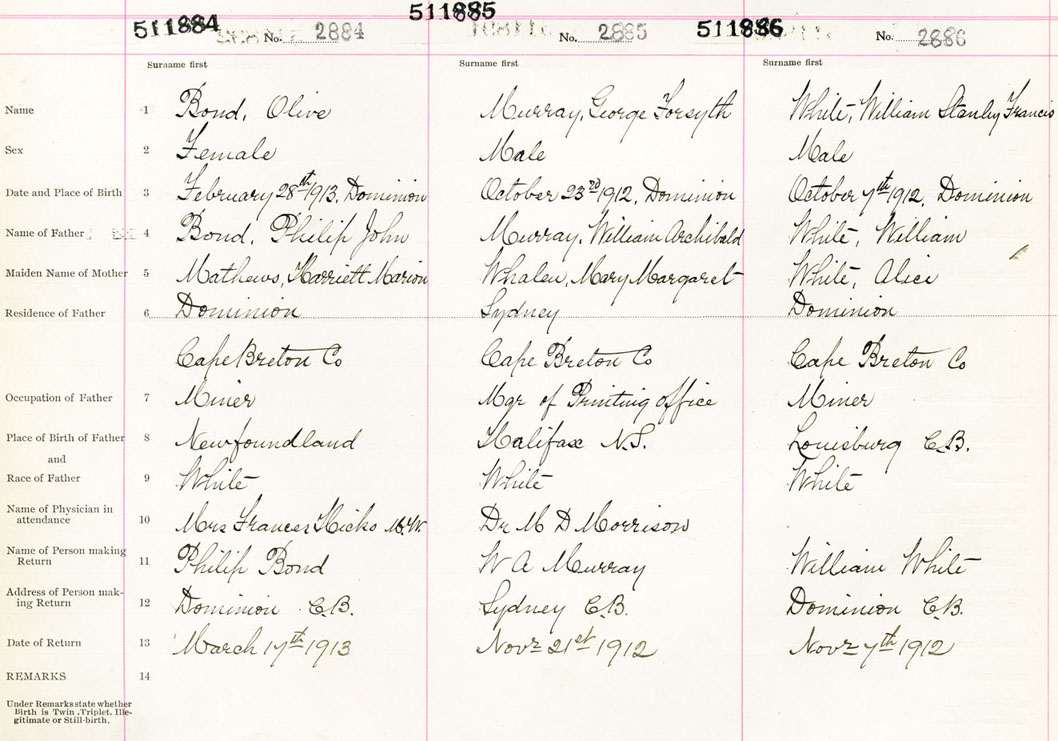 511884 No. 2884 511885 No. 2885 511886 No. 2886
Surname first Surname first Surname first
Name 1 Bond, Olive Murray, George Forsyth White, William Stanley Francis
Sex 2 Female Male Male
Date and Place of Birth 3 February 28th 1913, Dominion October 23rd 1912, Dominion October 7th 1912, Dominion
Name of Father 4 Bond, Philip John Murray, William Archibald White, William
Maiden Name of Mother 5 Mathews, Harriett Marion Whalen, Mary Margaret White, Alice
Residence of Father 6 Dominion Sydney Dominion
Cape Breton Co Cape Breton Co Cape Breton Co
Occupation of Father 7 Miner Mgr of Printing office Miner
Place of Birth of Father 8 Newfoundland Halifax N.S. Louisburg C.B.
and
Race of Father 9 White White White
Name of Physician in
attendance 10 Mrs Frances Hicks M.W. Dr M D Morrison
Name of Person making
Return 11 Philip Bond W A Murray William White
Address of Person mak-
ing Return 12 Dominion C.B. Sydney C.B. Dominion C.B.
Date of Return 13 March 17th 1913 Novr 21st 1912 Novr 7th 1912
REMARKS 14
Under Remarks state whether
Birth is Twin, Triplet, Ille-
gitimate or Still-birth.